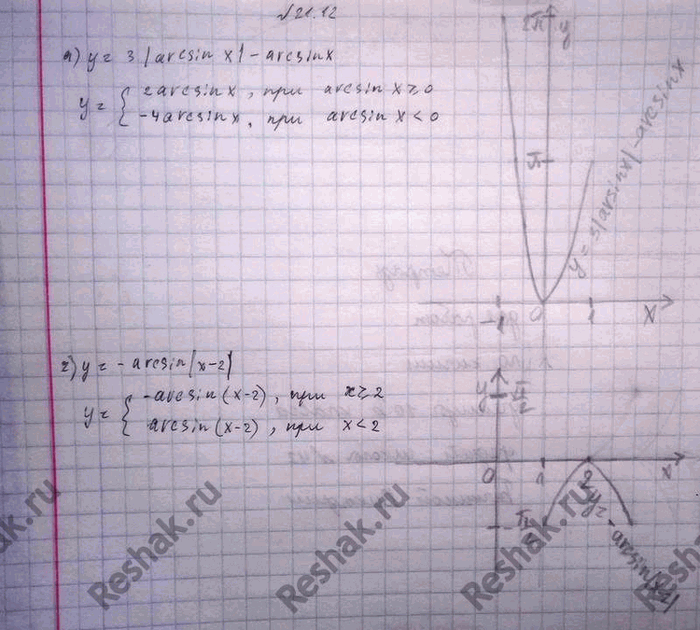 №21.12
а) y = 3|arcsin x| - arcsin x
y = { 2arcsin x, при arcsin x ≥ 0
-4arcsin x, при arcsin x < 0
2π y
π
y = 3|arcsin x| - arcsin x
-1 0 1 x
г) y = - arcsin|x-2|
y = { -arcsin(x-2), при x ≥ 2
arcsin(x-2), при x < 2
y π/2
0 1 2 x
y = -arcsin|x-2|
Reshak.ru
Reshak.ru
Reshak.ru
Reshak.ru